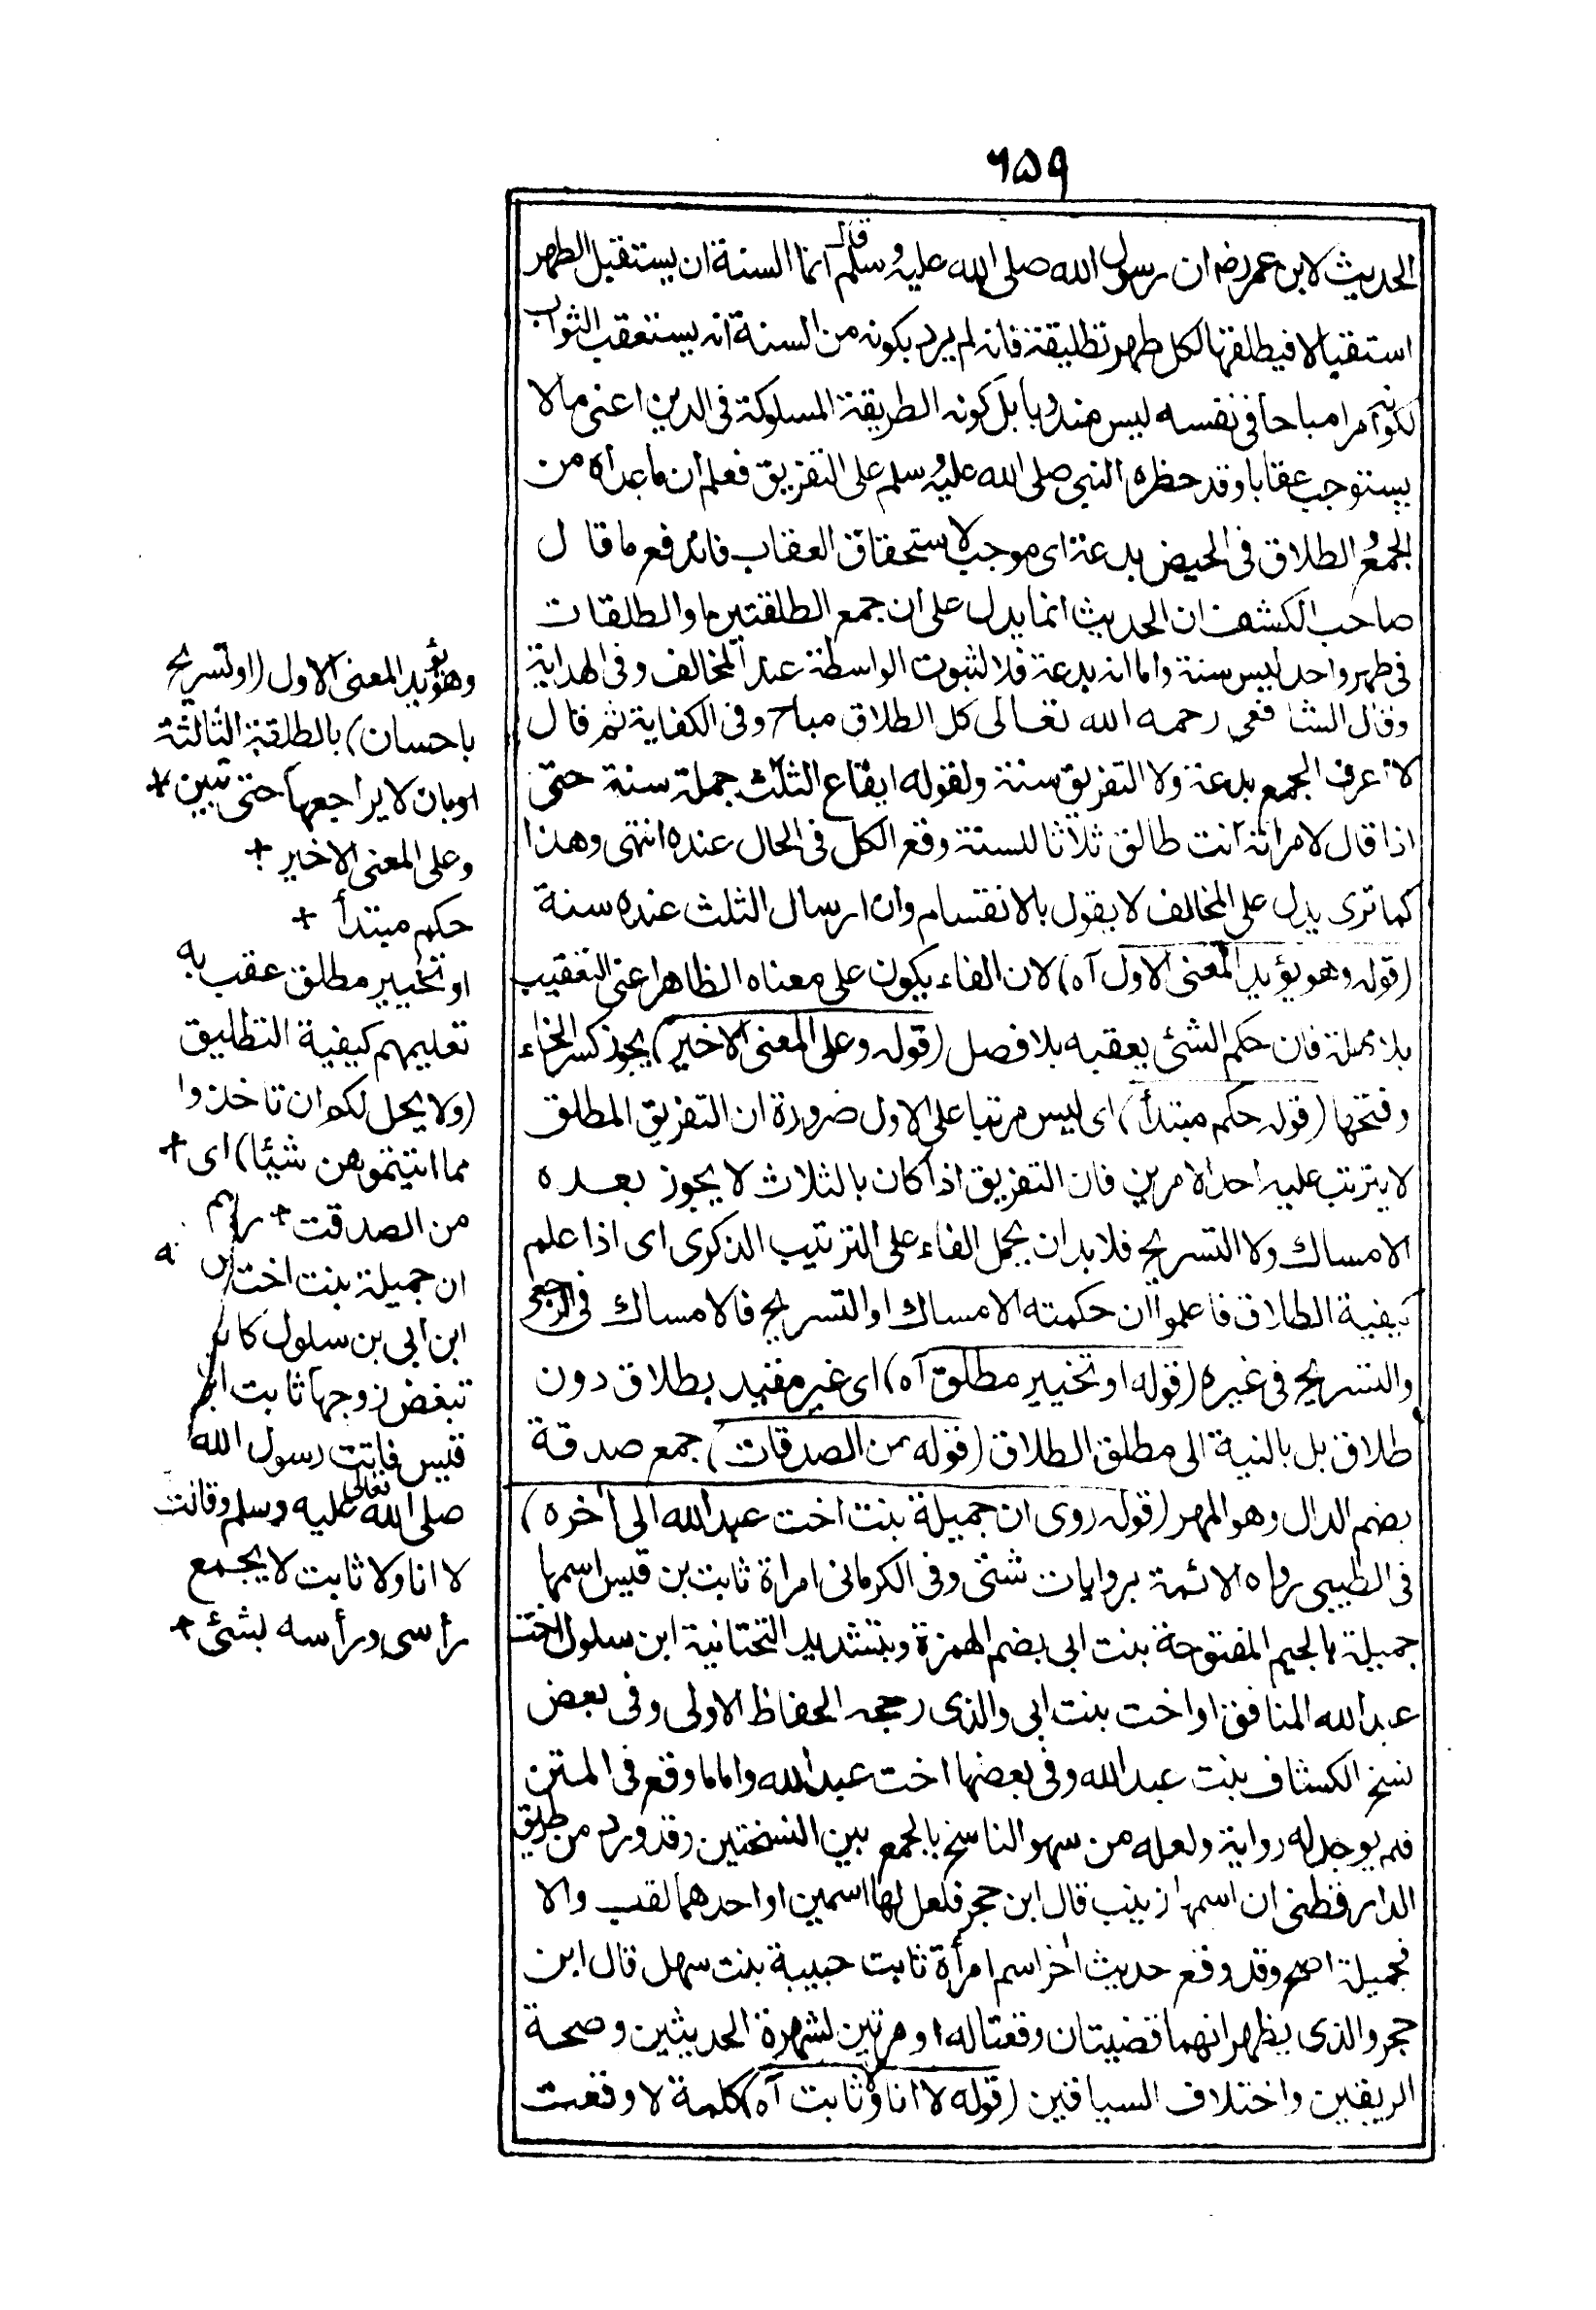 ٦٥٩
الحديث لابن عمر رض ان رسول الله صلى الله عليه وسلم قال انما السنة ان يستقبل الطهر
استقبالا فيطلقها لكل طهر تطليقة فانه لم يرد بكونه من السنة انه يستعقب الثواب
لكونه امرا مباحا فى نفسه ليس مندوبا بل كونه الطريقة المسلوكة فى الدين اعنى مالا
يستوجب عقابا وقد حظره النبى صلى الله عليه وسلم على التفريق فعلم ان ماعداه من
الجمع والطلاق فى الحيض بدعة اى موجب لاستحقاق العقاب فاندفع ما قال
صاحب الكشف ان الحديث انما يدل على ان جمع الطلقتين او الطلقات
فى طهر واحد ليس سنة واما انه بدعة فلا لثبوت الواسطة عند المخالف وفى الهداية
وقال الشافعى رحمه الله تعالى كل الطلاق مباح وفى الكفاية ثم قال
لا اعرف الجمع بدعة ولا التفريق سنة ولقوله ايقاع الثلث جملة سنة حتى
اذا قال لامراته انت طالق ثلاثا للسنة وقع الكل فى الحال عنده انتهى وهذا
كما ترى يدل على المخالف لا يقول بالانقسام وان ارسال الثلث عنده سنة
(قوله وهو يؤيد المعنى الاول آه) لان الفاء يكون على معناه الظاهر اعنى التعقيب
بلا مهلة فان حكم الشئ يعقبه بلا فصل (قوله وعلى المعنى الاخير) يجوز كسر الخاء
وفتحها (قوله حكم مبتدأ) اى ليس مرتبا على الاول ضرورة ان التفريق المطلق
لا يترتب عليه احد الامرين فان التفريق اذا كان بالثلاث لا يجوز بعده
الامساك ولا التسريح فلا بد ان يحمل الفاء على الترتيب الذكرى اى اذا علم
كيفية الطلاق فاعلموا ان حكمته الامساك او التسريح فالامساك فى الرجعى
والتسريح فى غيره (قوله او تخيير مطلق آه) اى غير مقيد بطلاق دون
طلاق بل بالنية الى مطلق الطلاق (قوله من الصدقات) جمع صدقة
بضم الدال وهو المهر (قوله روى ان جميلة بنت اخت عبد الله الى آخره)
فى الطيبى رواه الائمة بروايات شتى وفى الكرمانى امراة ثابت بن قيس اسمها
جميلة بالجيم المفتوحة بنت ابى بضم الهمزة وبتشديد التحتانية ابن سلول اخت
عبد الله المنافق او اخت بنت ابى والذى رجحه الحفاظ الاولى وفى بعض
نسخ الكشاف بنت عبد الله وفى بعضها اخت عبد الله واما ما وقع فى المتن
فلم يوجد له رواية ولعله من سهو الناسخ بالجمع بين النسختين وقد ورد من طريق
الدارقطنى ان اسمها زينب قال ابن حجر فلعل لها اسمين او احدهما لقب والا
فجميلة اصح وقد وقع حديث اخر اسم امرأة ثابت حبيبة بنت سهل قال ابن
حجر والذى يظهر انهما قضيتان وقعتا له او مرتين لشهرة الحديثين وصحة
الريقين واختلاف السياقين (قوله لا انا ولا ثابت آه) كلمة لا وقعت
وهو يؤيد المعنى الاول (او تسريح
باحسان) بالطلقة الثالثة
او بان لا يراجعها حتى تبين +
وعلى المعنى الاخير +
حكم مبتدأ +
او تخيير مطلق عقب به
تعليمهم كيفية التطليق
(ولا يحل لكم ان تاخذوا
مما اتيتموهن شيئا) اى +
من الصدقت +
ان جميلة بنت اخت
ابن ابى بن سلول
تبغض زوجها ثابت
قيس فاتت رسول الله
صلى الله تعالى عليه وسلم وقالت
لا انا ولا ثابت لا يجمع
رأسى ورأسه بشئ +